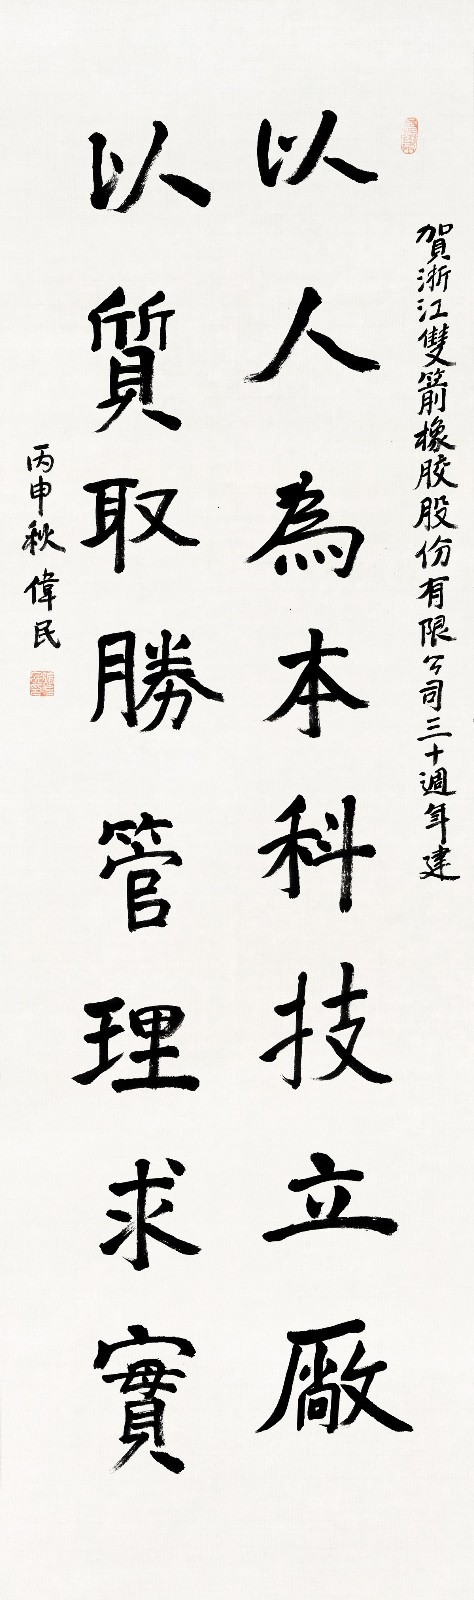 賀浙江雙箭橡胶股份有限公司三十週年建
以人為本科技立廠
以質取勝管理求實
丙申秋偉民